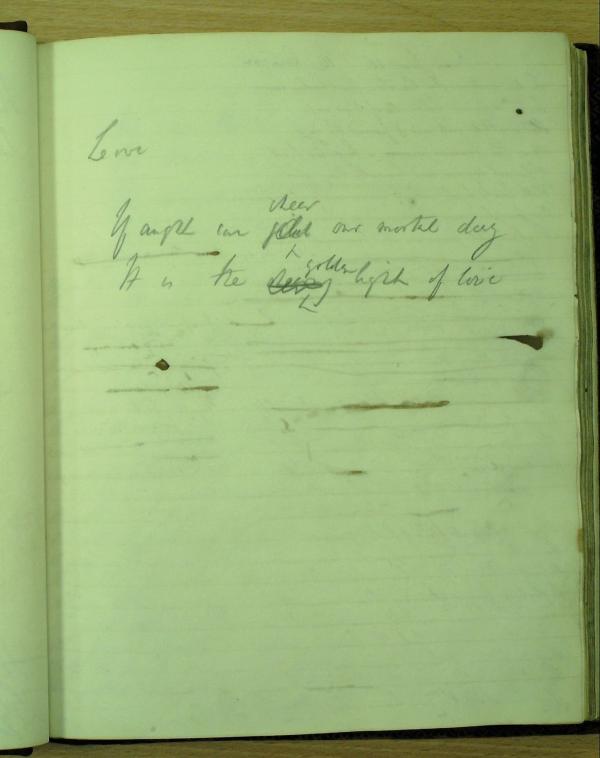 Love
If aught can cheer our mortal day
It is the golden light of love